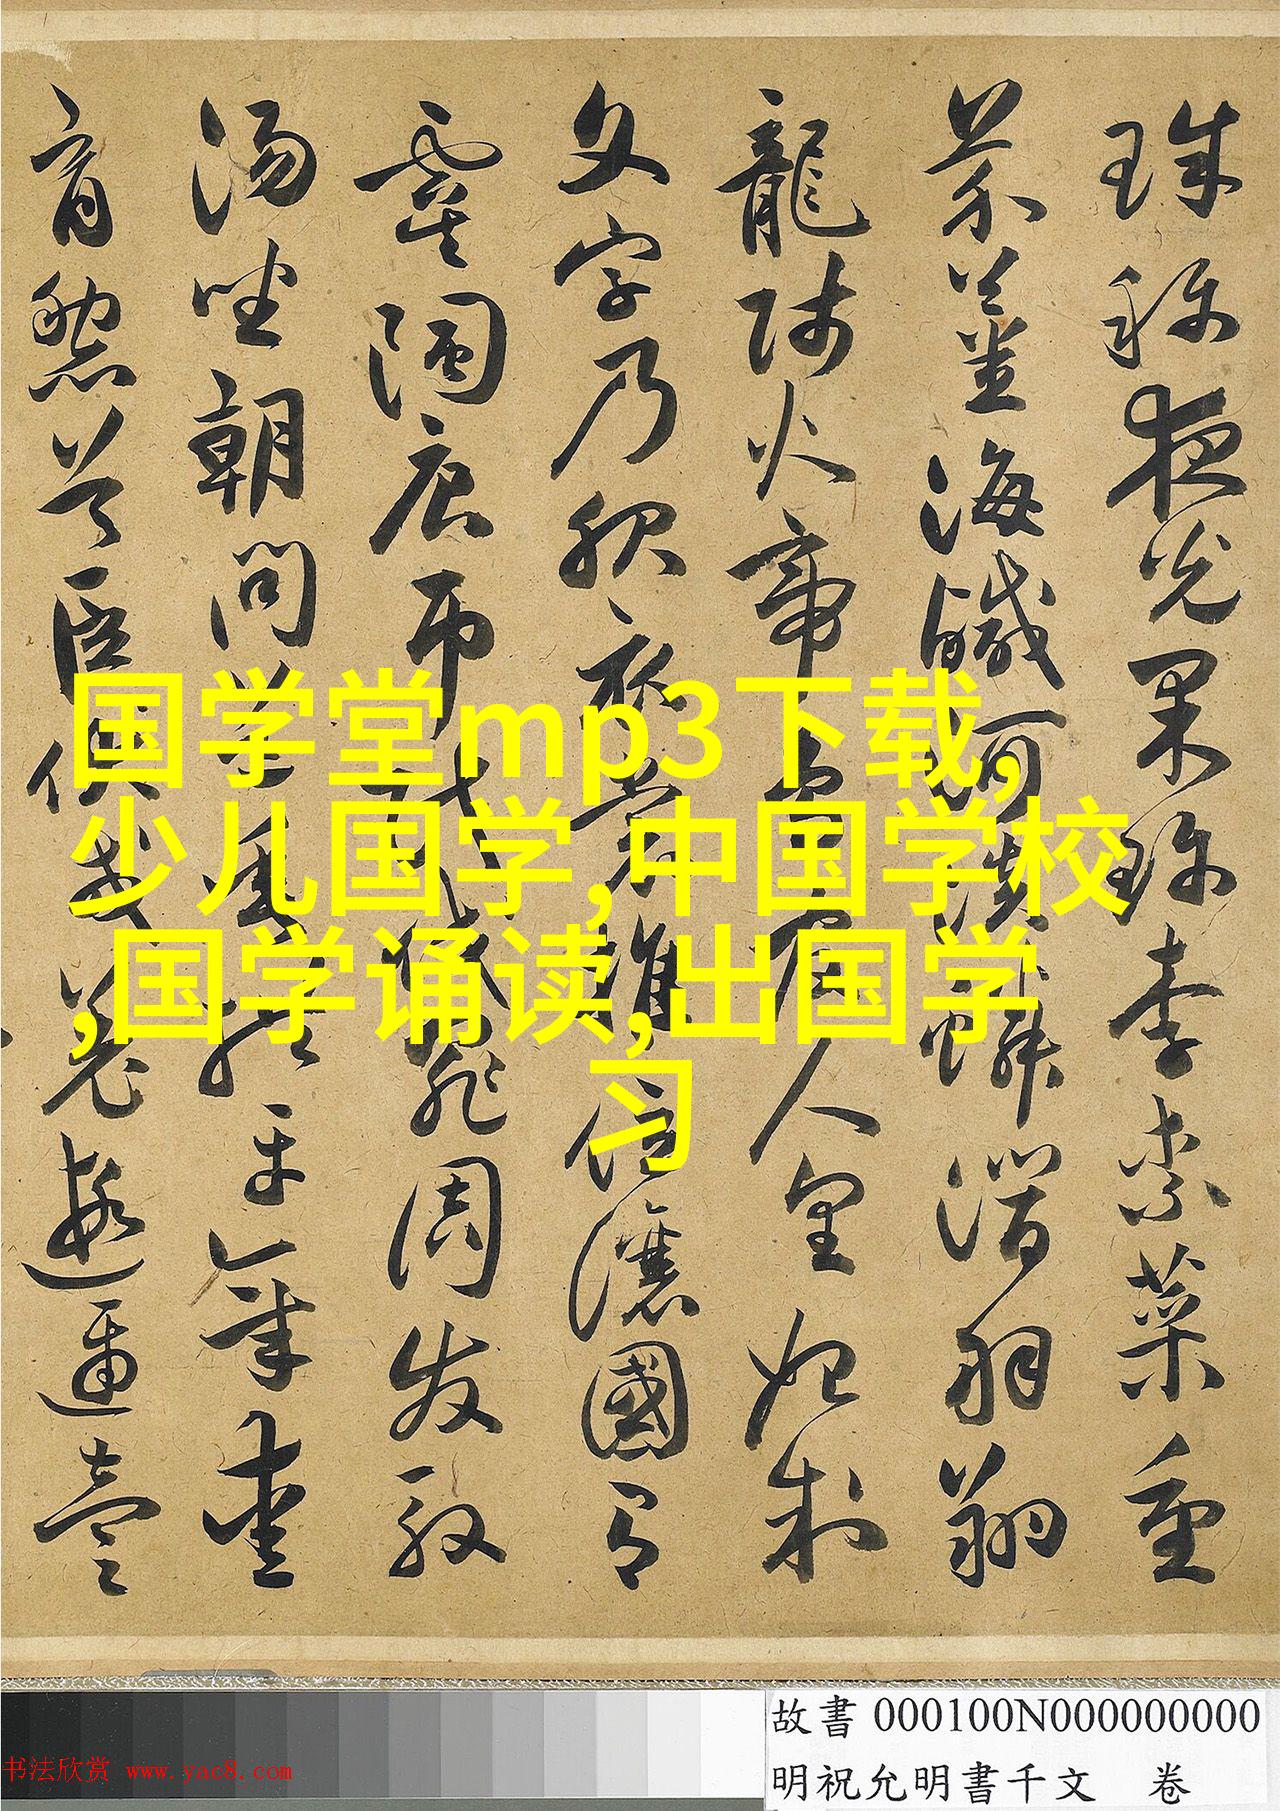 珠称夜光果珍李柰菜重
芥薑海鹹河淡鱗潛羽翔
龍師火帝鳥官人皇始制
文字乃服衣裳推位讓國有
虞陶唐弔民伐罪周發殷
湯坐朝問道垂拱平章愛
育黎首臣伏戎羌遐邇壹
国学堂mp3下载,
少儿国学,中国学校
,国学诵读,出国学
习
故書 000100N000000000
明祝允明書千文 卷
书法欣赏 www.yac8.com